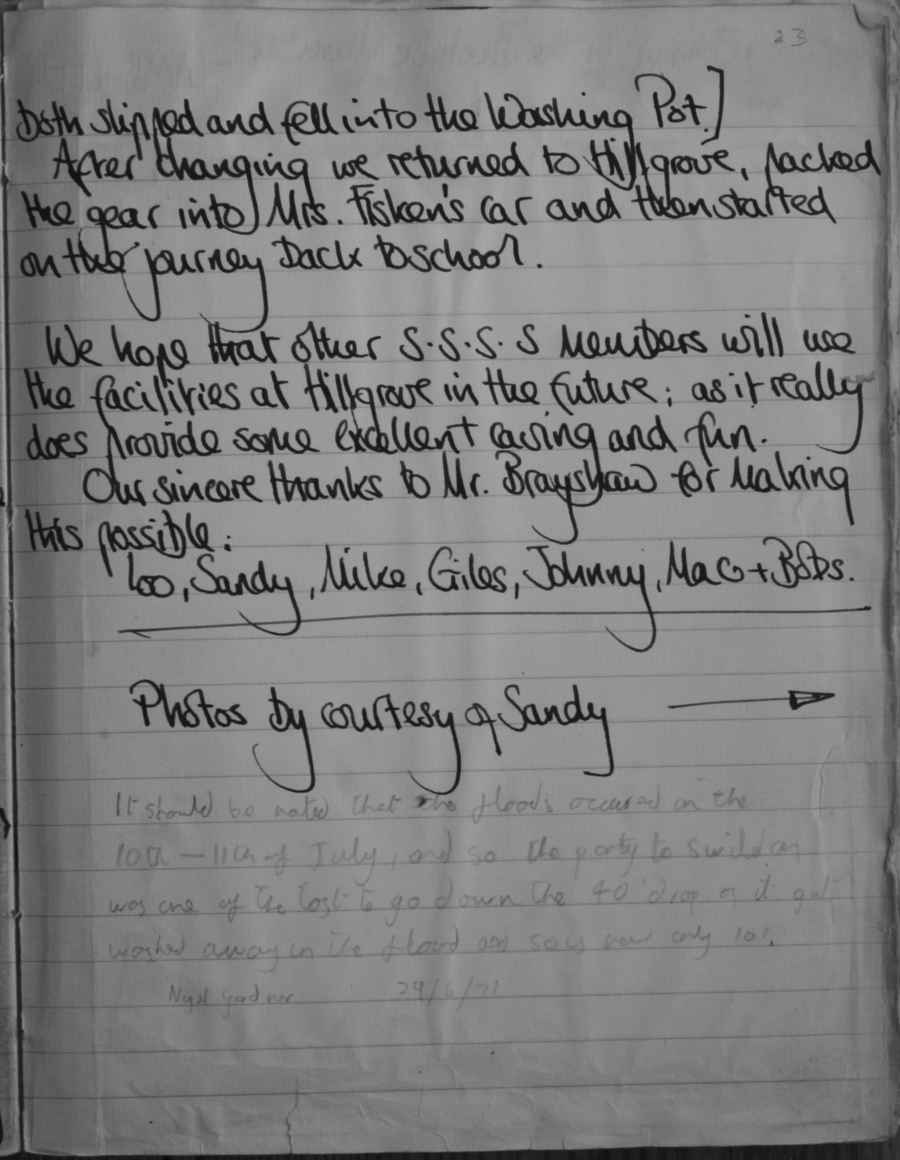 23
both slipped and fell into the Washing Pot.]
After changing we returned to Hillgrove, packed
the gear into Mrs. Fisken's car and then started
on the journey back to school.
We hope that other S.S.S.S members will use
the facilities at Hillgrove in the future; as it really
does provide some excellent caving and fun.
Our sincere thanks to Mr. Brayshaw for making
this possible.
Loo, Sandy, Mike, Giles, Johnny, Mac + Bobs.
Photos by courtesy of Sandy
It should be noted that the floods occured on the
10th - 11th of July, and so the party to swildon
was one of the last to go down the 40' drop as it got
washed away in the flood and so is now only 10'.
Nigel Gardner